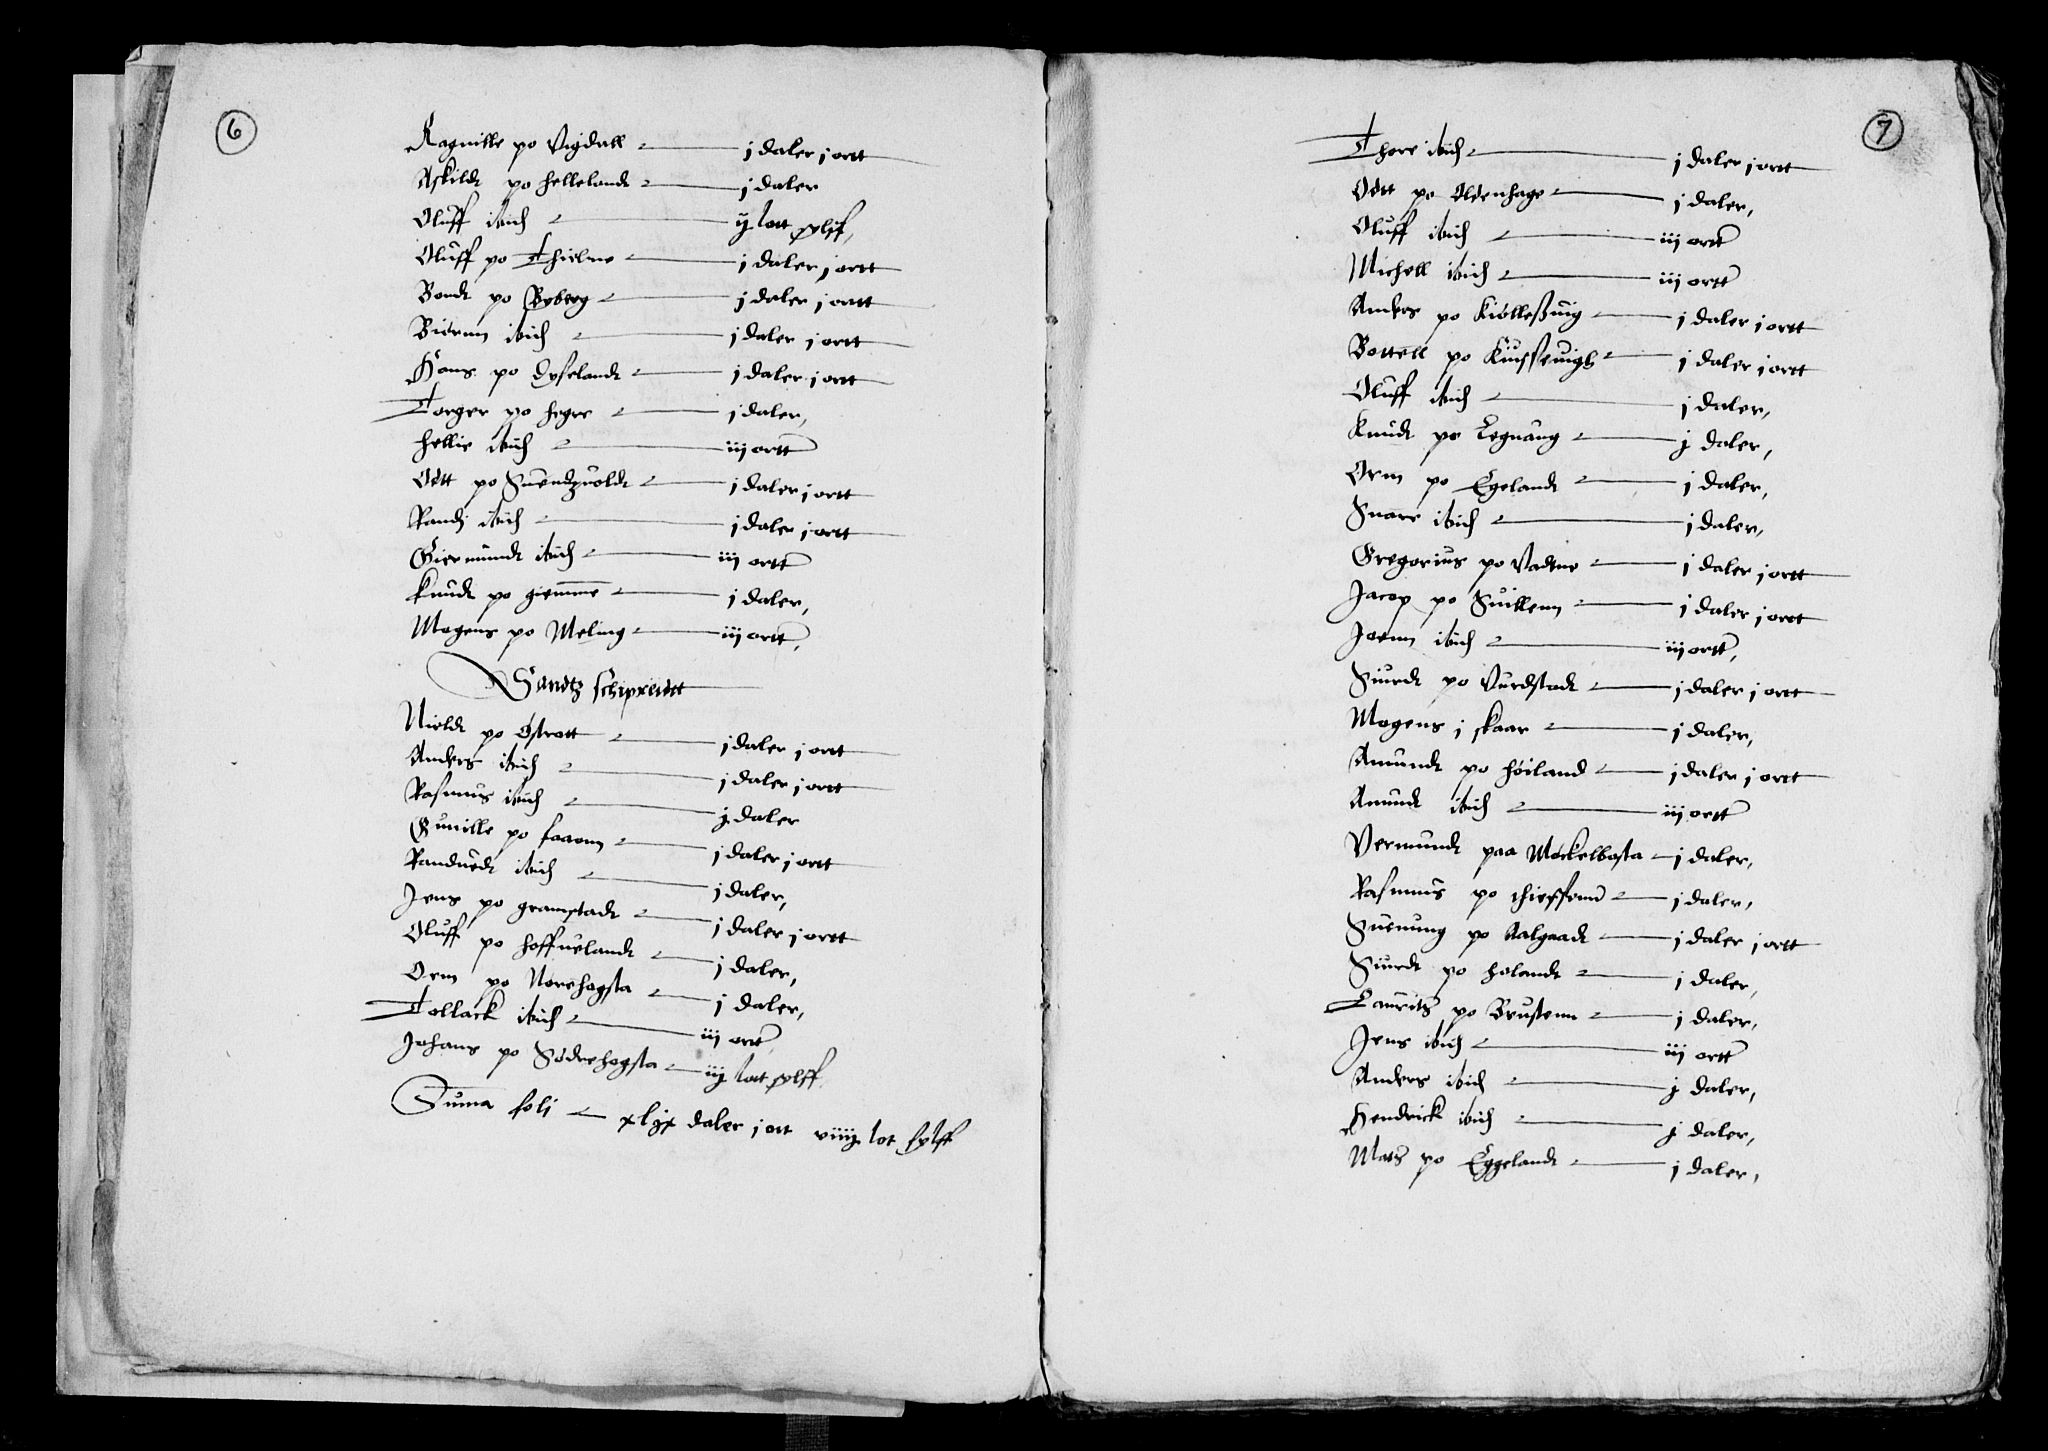 6
Ragnille po Vigdall — j daler j ortt
Askildt po Hellelandt — j daler
Oluff ibid — ij lott sølff,
Oluff po Thielne — j daler j ortt
Bondt po Byberg — j daler j ortt
Biørnn ibid — j daler j ortt
Hans po Dyselandt — j daler j ortt
Torger po Hegre — j daler,
Hellie ibid — iij ortt
Odtt po Suendzuoldt — j daler j ortt
Randj ibid — j daler j ortt
Giermundt ibid — iij ortt
Knudt po giemme — j daler,
Mogens po Meling — iij ortt,
Sandtz schipreidtt
Nieldt po Østratt — j daler j ortt
Anders ibid — j daler j ortt
Rasmus ibid — j daler
Gunille po faaonn — j daler j ortt
Randuedt ibid — j daler,
Jens po gramstadt — j daler j ortt
Oluff po Hoffuelandt — j daler,
Orm po Norehogsta — j daler,
Tollack ibid — iij ortt
Johans po Sødrehogsta — iij lott sølff
Suma folj — xljx daler j ortt viiij lot sølff
7
Thore ibid — j daler j ortt
Odtt po Oldenhage — j daler,
Oluff ibid — iij ortt
Michell ibid — iij ortt
Anders po Kiølleßuig — j daler j ortt
Bottell po Kuusseuigh — j daler j ortt
Oluff ibid — j daler,
Knudt po Legnang — j daler,
Orm po Egelandt — j daler,
Snare ibid — j daler,
Gregorius po Vadtne — j daler j ortt
Jacop po Suillenn — j daler j ortt
Joenn ibid — iij ortt,
Siurdt po Vurdstadt — j daler j ortt
Mogens j skaar — j daler,
Amundt po Høiland — j daler j ortt
Amundt ibid — iij ortt
Vermundt paa Møckelbosta — j daler,
Rasmus po thieffenn — j daler,
Suenung po Aalgaadt — j daler j ortt
Siurdt po Holandt — j daler,
Lauritz po Brustenn — j daler,
Jens ibid — iij ortt
Anders ibid — j daler,
Hendrick ibid — j daler,
Matz po Eggelandt — j daler,